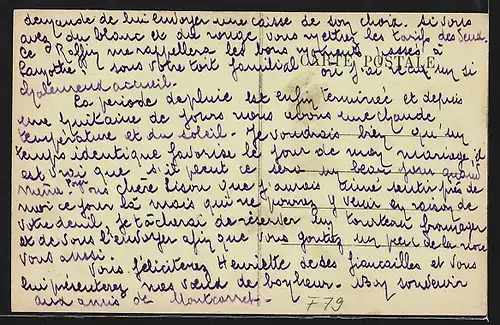 demande de lui envoyer une caisse de son choix. Si vous
avez du blanc et du rouge vous mettrez les tarifs des deux.
Ce me rappellera les bons moments passés à
sous votre toit familial où j'ai reçu un si
CARTE POSTALE
chaleureux accueil.
La periode de pluie est enfin terminée et depuis
une huitaine de jours nous avons une chaude
température et du soleil. Je voudrais bien qu'un
temps identique favorise le jour de mon mariage, il
est vrai que s'il peut ce sera un beau jour quand
même. Vous chère que j'aurais aimé sentir près de
moi ce jour là mais qui ne pourrez y venir en raison de
votre deuil. Je tâcherai de réserver un tourteau fromager
et de vous l'envoyer afin que vous goûtiez un peu de la noce
vous aussi.
Vous féliciterez Henriette de ses fiancailles et vous
lui présenterez mes vœux de bonheur. Bon souvenir
aux amis de
F79